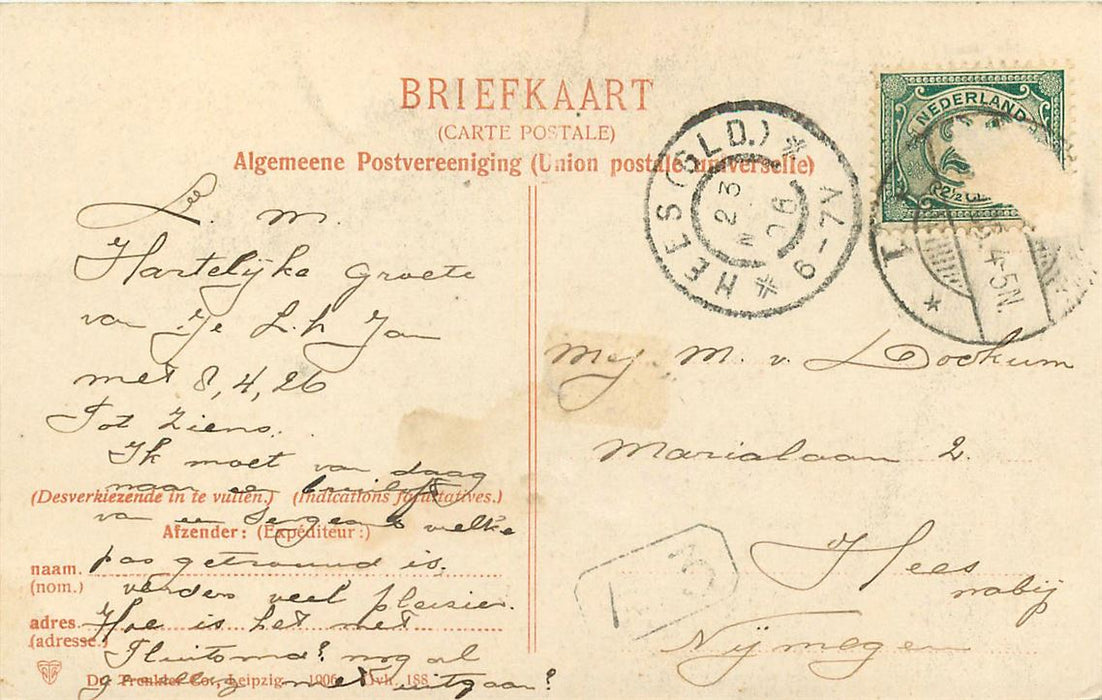 BRIEFKAART
(CARTE POSTALE)
Algemeene Postvereeniging (Union postale universelle)
NEDERLAND
2½
HEES (GLD.)
23
06
6-7V
4-5N.
L. M.
Hartelijke Groete
van Je L. h Jan
met 8, 4, 26
Tot Ziens.
Ik moet van daag
naar een bruiloft
(Desverkiezende in te vullen.) (Indications facultatives.)
van een Sergeant welke
Afzender: (Expéditeur:)
pas getrouwd is.
naam.
(nom.)
verders veel pleisier.
adres
(adresse.)
Hoe is het met
nog al
met uitgaan?
Dr. Trenkler Co., Leipzig. 1906. Ovh. 188
Mej. M. v. Dockum
Marialaan 2.
Hees
nabij
Nijmegen